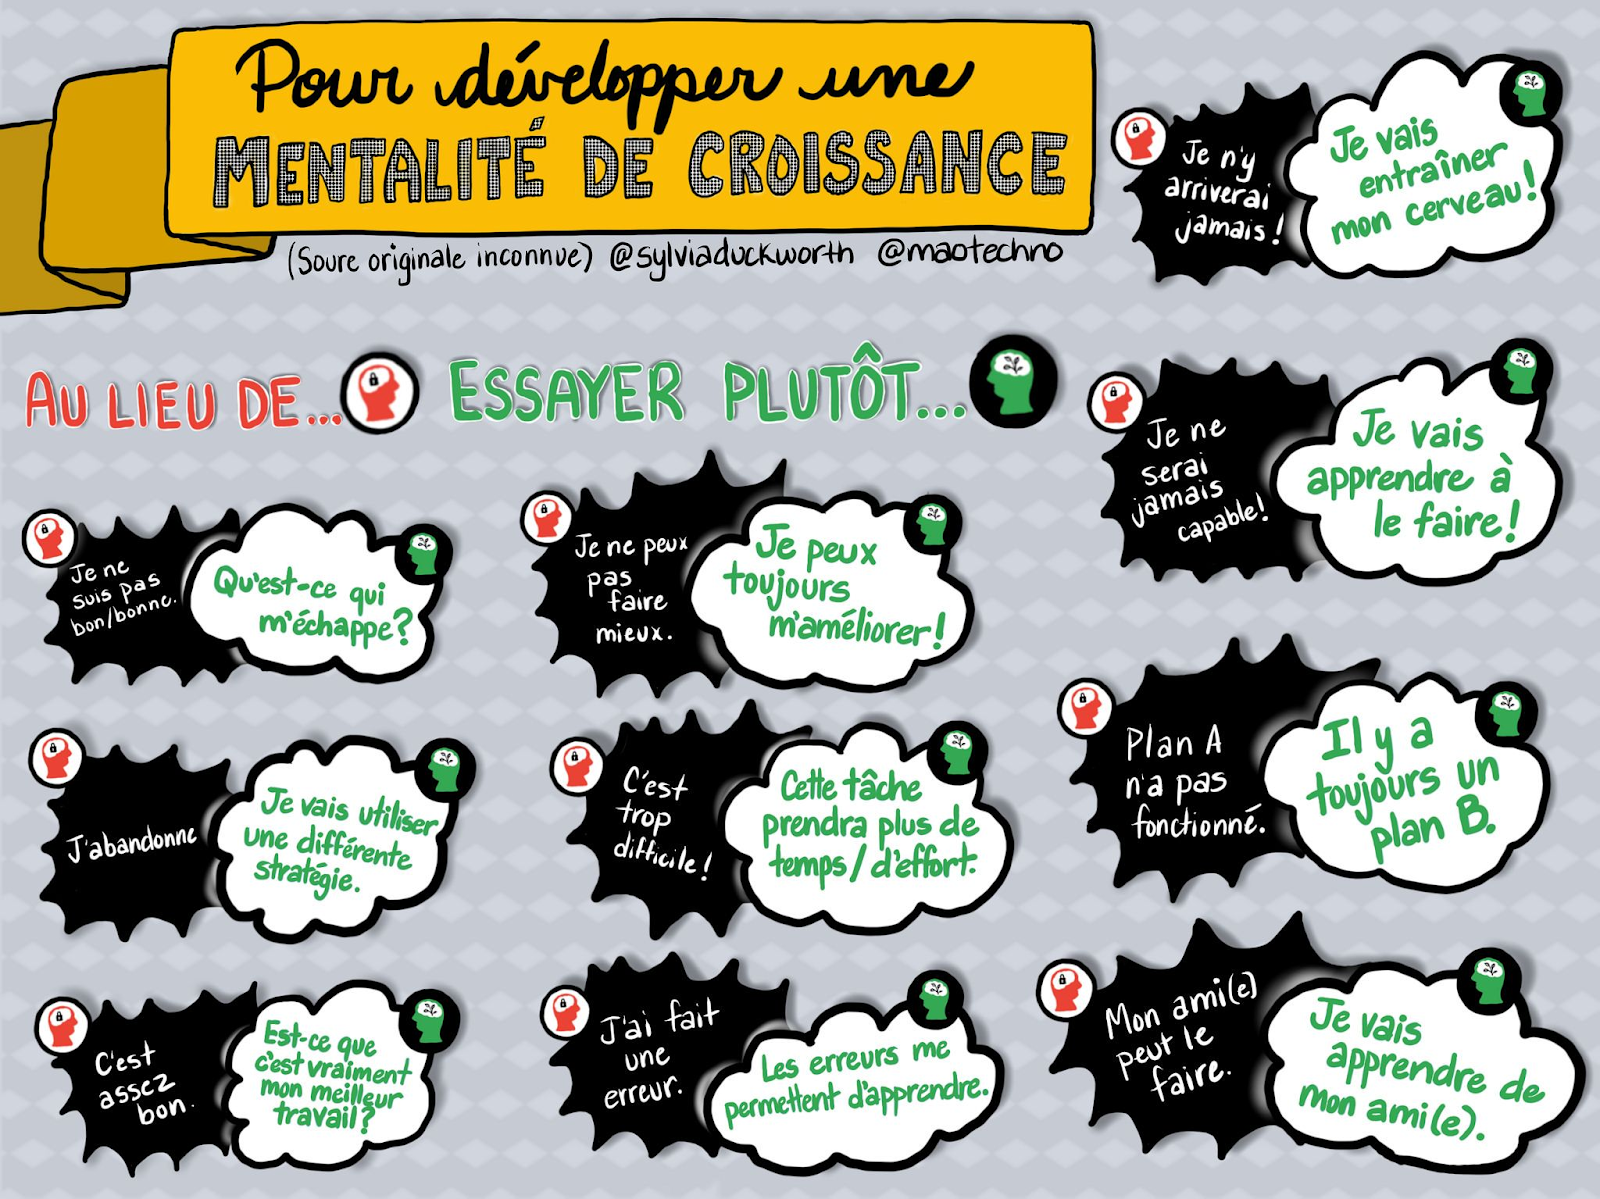 Pour développer une
MENTALITÉ DE CROISSANCE
(Soure originale inconnue) @sylviaduckworth @maotechno
AU LIEU DE...
ESSAYER PLUTÔT...
Je ne
suis pas
bon/bonne.
Qu'est-ce qui
m'échappe?
J'abandonne
Je vais utiliser
une différente
stratégie.
C'est
assez
bon.
Est-ce que
c'est vraiment
mon meilleur
travail?
Je ne peux
pas
faire
mieux.
Je peux
toujours
m'améliorer!
C'est
trop
difficile!
Cette tâche
prendra plus de
temps/d'effort.
J'ai fait
une
erreur.
Les erreurs me
permettent d'apprendre.
Je n'y
arriverai
jamais!
Je vais
entraîner
mon cerveau!
Je ne
serai
jamais
capable!
Je vais
apprendre à
le faire!
Plan A
n'a pas
fonctionné.
Il y a
toujours un
plan B.
Mon ami(e)
peut le
faire.
Je vais
apprendre de
mon ami(e).